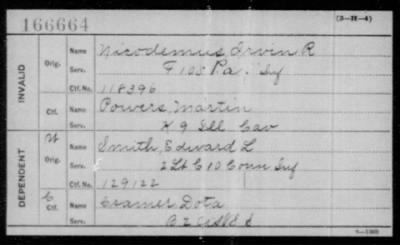 166664
(3-IX-4)
INVALID
Orig. Name Nicodemus, Irvin R
Serv. F 105 Pa. Inf
Ctf. No. 118396
Ctf. Name Powers, Martin
Serv. K 9 Ill Cav
DEPENDENT
W
Orig. Name Smith, Edward L
Serv. 2 Lt C 10 Conn Inf
Ctf. No. 129122
C
Ctf. Name Cramer, Dota
Serv.